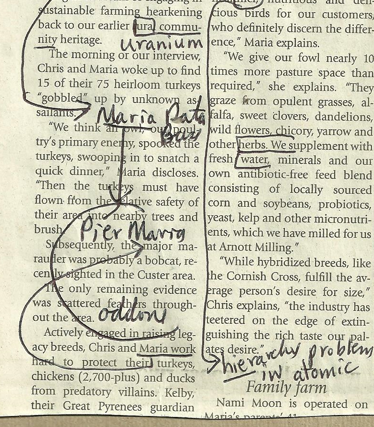 sustainable farming hearkening
back to our earlier rural commu-
nity heritage.
uranium
The morning of our interview,
Chris and Maria woke up to find
15 of their 75 heirloom turkeys
"gobbled" up by unknown as-
sailants.
Maria
"We think an owl, our poul-
try's primary enemy, spooked the
turkeys, swooping in to snatch a
quick dinner," Maria discloses.
"Then the turkeys must have
flown from the relative safety of
their area into nearby trees and
brush.
Pier Maria
Subsequently, the major ma-
rauder was probably a bobcat, re-
cently sighted in the Custer area.
The only remaining evidence
was scattered feathers through-
out the area.
Actively engaged in raising leg-
acy breeds, Chris and Maria work
hard to protect their turkeys,
chickens (2,700-plus) and ducks
from predatory villains. Kelby,
their Great Pyrenees guardian
cious birds for our customers,
who definitely discern the differ-
ence," Maria explains.
"We give our fowl nearly 10
times more pasture space than
required," she explains. "They
graze from opulent grasses, al-
falfa, sweet clovers, dandelions,
wild flowers, chicory, yarrow and
other herbs. We supplement with
fresh water, minerals and our
own antibiotic-free feed blend
consisting of locally sourced
corn and soybeans, probiotics,
yeast, kelp and other micronutri-
ents, which we have milled for us
at Arnott Milling."
"While hybridized breeds, like
the Cornish Cross, fulfill the av-
erage person's desire for size,"
Chris explains, "the industry has
teetered on the edge of extin-
guishing the rich taste our pal-
ates desire."
hierarchy problem
in atomic
Family farm
Nami Moon is operated on